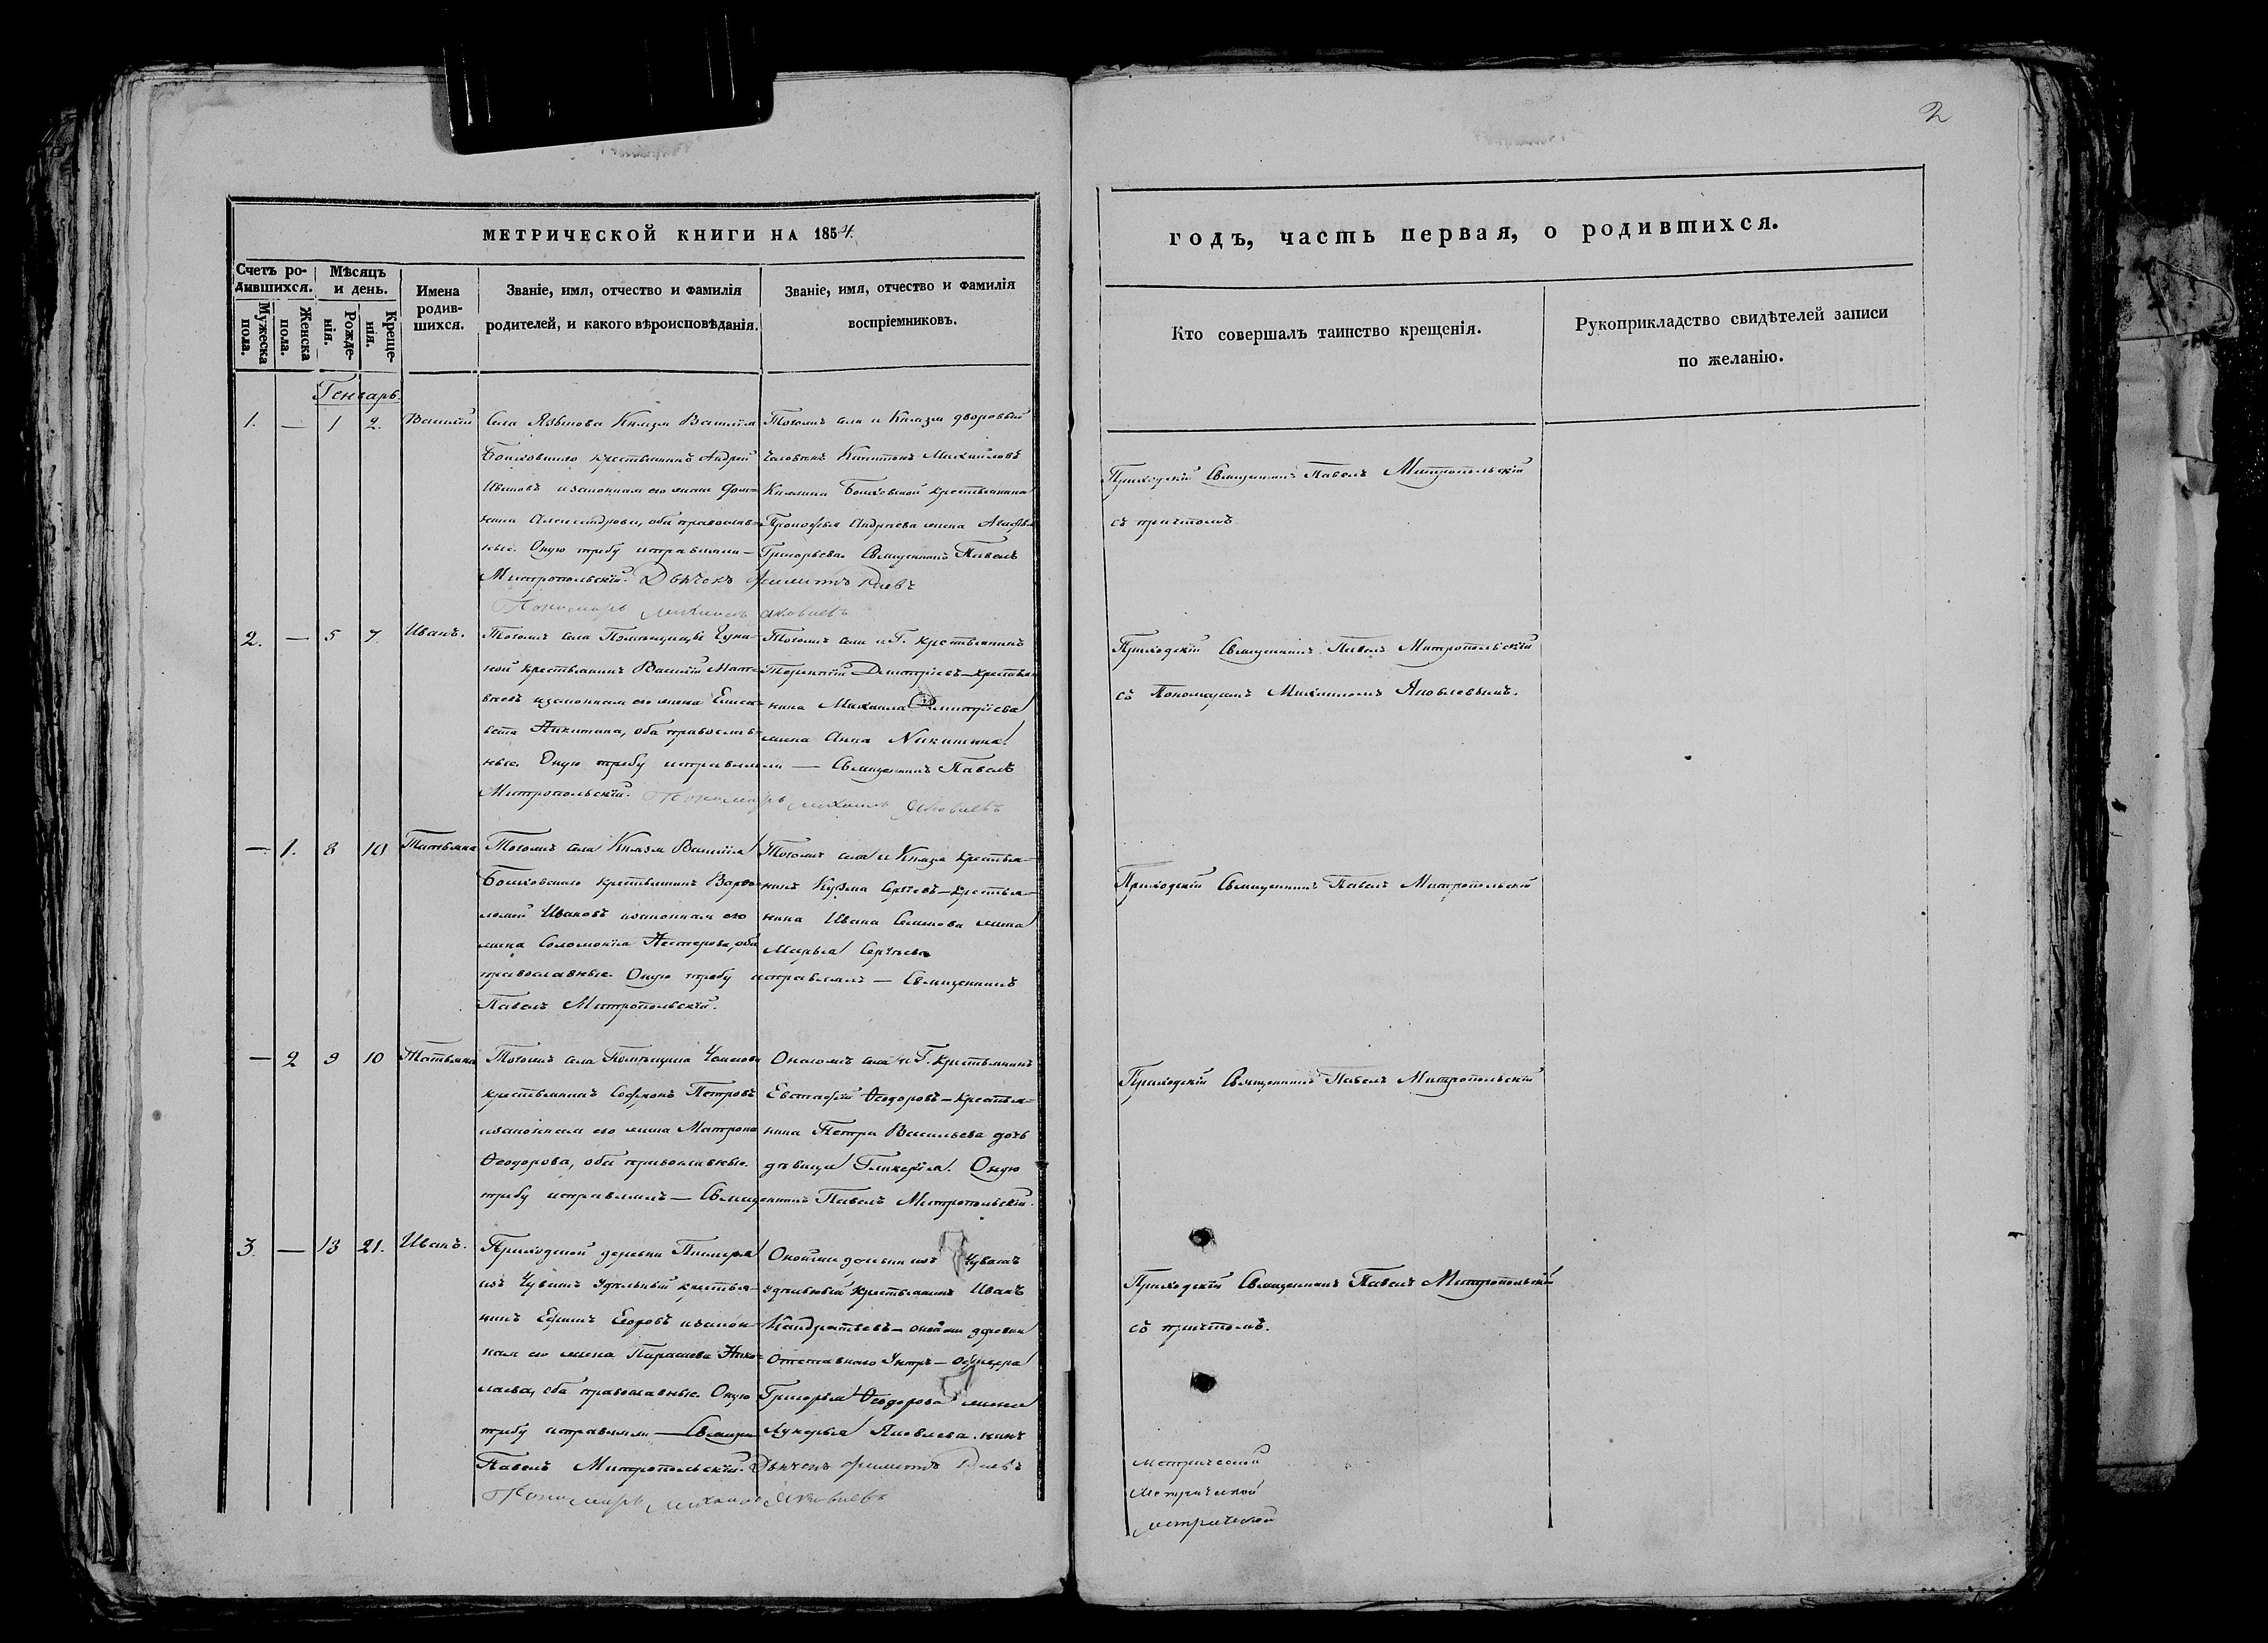 2
МЕТРИЧЕСКОЙ КНИГИ НА 1854.
годъ, часть первая, о родившихся.
Счетъ родившихся.
Мужеска пола.
Женска пола.
Мѣсяцъ и день.
Рожденія.
Крещенія.
Имена родившихся.
Званіе, имя, отчество и фамилія
родителей, и какого вѣроисповѣданія.
Званіе, имя, отчество и фамилія
воспріемниковъ.
Кто совершалъ таинство крещенія.
Рукоприкладство свидѣтелей записи
по желанію.
Генварь
1. — 1 2. Василій
Села Языкова Князя Василія
крестьянинъ Андрей
Ивановъ и законная его жена
Александрова, оба православ-
ные. Оную требу исправляли — Священникъ Павелъ
Митропольскій. Дьячекъ Филиппъ
Пономарь Михаилъ Яковлевъ
Тогожъ села и Князя дворовый
человекъ Капитонъ Михайловъ
Княгини крестьянина
Прокофья Андреева жена
Григорьева.
Приходскій Священникъ Павелъ Митропольскій
съ причтомъ
2. — 5 7. Иванъ.
Тогожъ села Помѣщицы
крестьянинъ Василій Мат-
веевъ и законная его жена Елиса-
вета Никитина, оба православ-
ные. Оную требу исправляли — Священникъ Павелъ
Митропольскій. Пономарь Михаилъ Яковлевъ
Тогожъ села и Г. крестьянинъ
Терентій Дмитріевъ — крестья-
нина Михаила Дмитріева
жена Анна Никитина.
Приходскій Священникъ Павелъ Митропольскій
съ Пономаремъ Михаиломъ Яковлевымъ.
— 1. 8 10 Татьяна
Тогожъ села Князя Василія
крестьянинъ Варфо-
ломей Ивановъ и законная его
жена Соломонія Нестерова, оба
православные. Оную требу исправлялъ — Священникъ
Павелъ Митропольскій.
Тогожъ села и Князя крестья-
нинъ Кузма Сергѣевъ — крестья-
нина Ивана Семенова жена
Марья Сергѣева
Приходскій Священникъ Павелъ Митропольскій
— 2 9 10 Татьяна
Тогожъ села Помѣщика
крестьянинъ Софронъ Петровъ
и законная его жена Матрона
Ѳеодорова, оба православные.
требу исправлялъ — Священникъ Павелъ Митропольскій.
Онагожъ села и Г. крестьянинъ
Евстафій Ѳеодоровъ — крестья-
нина Петра Васильева дочь
дѣвица Гликерія. Оную
Приходскій Священникъ Павелъ Митропольскій
3. — 13 21. Иванъ.
Приходской деревни
изъ Чувашъ удѣльный крестья-
нинъ Ефимъ Егоровъ и закон-
ная его жена Парасева Нико-
лаева, оба православные. Оную
требу исправляли — Священникъ
Павелъ Митропольскій. Дьячекъ Филиппъ
Пономарь Михаилъ Яковлевъ
Онойже деревни изъ Чувашъ
удѣльный крестьянинъ Иванъ
Кандратьевъ — онойже деревни
отставнаго Унтеръ-офицера
Григорья Ѳеодорова жена
Лукерья Яковлева.
Приходскій Священникъ Павелъ Митропольскій
съ причтомъ.
Метрической
Метрической
метрической